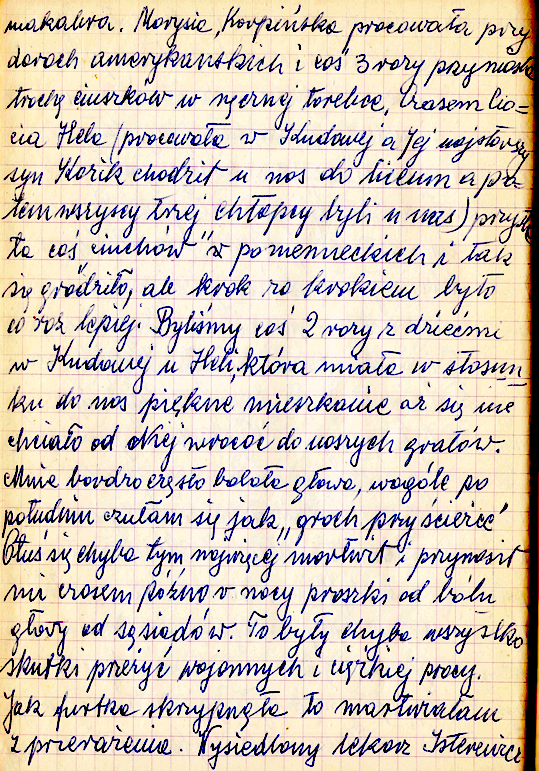 makabra. Marysia Karpińska pracowała przy
darach amerykańskich i coś 3 razy przyniosła
trochę ciuszków w ręcznej torebce, Czasem cio-
cia Hela (pracowała w Kudowej a Jej najstarszy
syn Kazik chodził u nas do liceum a po-
tem wszyscy trzej chłopcy byli u nas) przysła
ła coś "ciuchów" z poniemieckich i tak
się gradziło, ale krok za krokiem było
co raz lepiej. Byliśmy coś 2 razy z dziećmi
w Kudowej u Heli, która miała w stosun
ku do nas piękne mieszkanie aż się nie
chciało od Niej wracać do naszych gratów.
Mnie bardzo często bolała głowa, wogóle po
południu czułam się jak "groch przy ścieżce"
się chyba tym najwięcej martwił i przynosił
mi czasem późno w nocy proszki od bólu
głowy od sąsiadów. To były chyba wszystko
skutki przeżyć wojennych i ciężkiej pracy.
Jak furtka skrzypnęła to martwiałam
z przerażenia. Wysiedlony lekarz